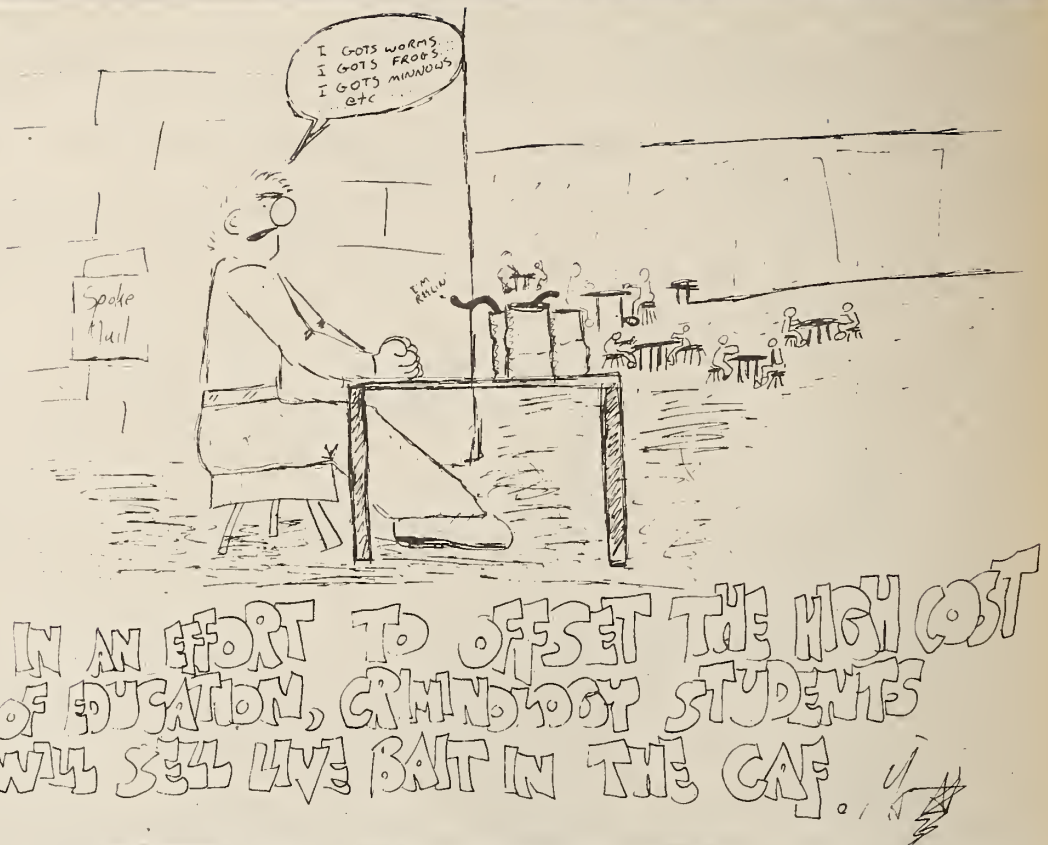 I GOTS WORMS...
I GOTS FROGS...
I GOTS MINNOWS
etc...
I'M
Spoke
Mail
IN AN EFFORT TO OFFSET THE HIGH COST
OF EDUCATION, CRIMINOLOGY STUDENTS
WILL SELL LIVE BAIT IN THE CAF.